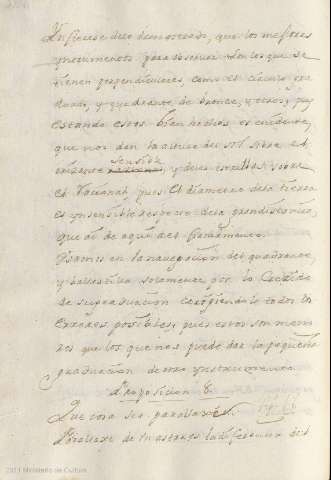 Infierese delo demostrado, que los mejores
ynstrumentos para observar son los que se
tienen perpendiculares como el circulo gra
duado, y quadrante de bronce, y otros, pues
estando estos bien hechos es evidente,
que nos dan la altura del sol sobre el
orizonte sensible, y delas estrellas sobre
el racional, pues el diametro dela tierra
es ynsensible respecto dela gran distancia,
que ai de aqui al firmamento.
Usamos en la navegacion del quadrante,
y ballestilla solamente por lo
de su graduacion corrigiendole todos los
errores posibles, pues estos son meno
res que los que nos puede dar la pequeña
graduacion de otro ynstrumento.
Proposicion 8.
Que cosa sea paralaxe.
Paralaxe de un astro es la diferencia del
2011 Ministerio de Cultura